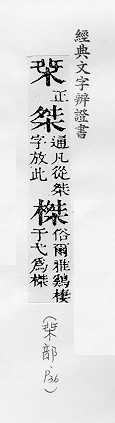 經典文字辨證書
正
桀
通凡從桀
字放此
榤
俗爾雅鷄棲
于弋爲榤
部.P36)